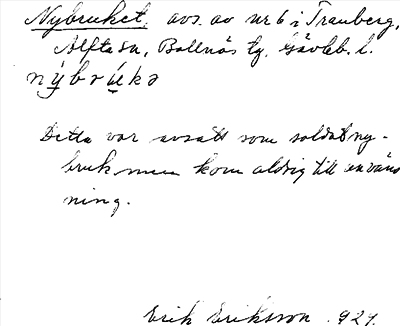 Nybruket, avs. av nr 6 i Tranberg,
Alfta sn, Bollnäs tg. Gävleb. l.
nýbrùkə
Detta var avsatt som soldatny-
bruk men kom aldrig till använd
ning.
Erik Eriksson. 927.